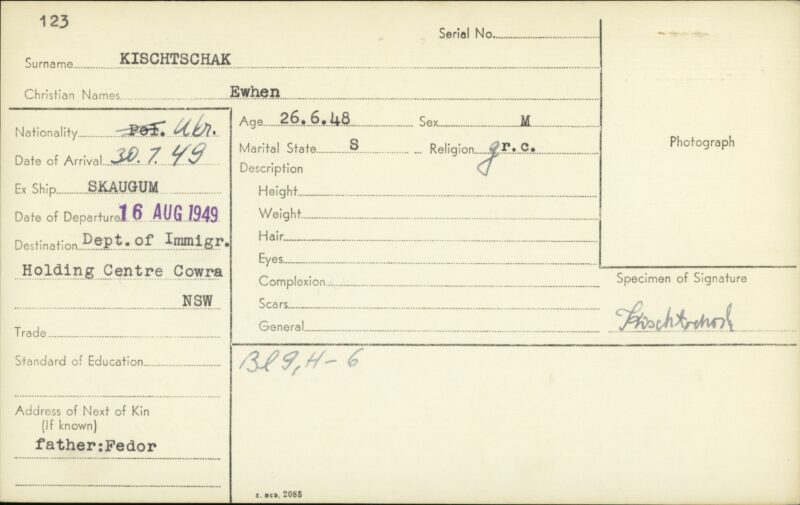 123
Serial No.
Surname KISCHTSCHAK
Christian Names Ewhen
Nationality Pol. Ukr.
Date of Arrival 30.7.49
Ex Ship SKAUGUM
Date of Departure 16 AUG 1949
Destination Dept.of Immigr.
Holding Centre Cowra
NSW
Trade
Standard of Education
Address of Next of Kin
(If known)
father:Fedor
Age 26.6.48 Sex M
Marital State S Religion gr.c.
Description
Height
Weight
Hair
Eyes
Complexion
Scars
General
Bl 9, H-6
Photograph
Specimen of Signature
S. MCD. 2085